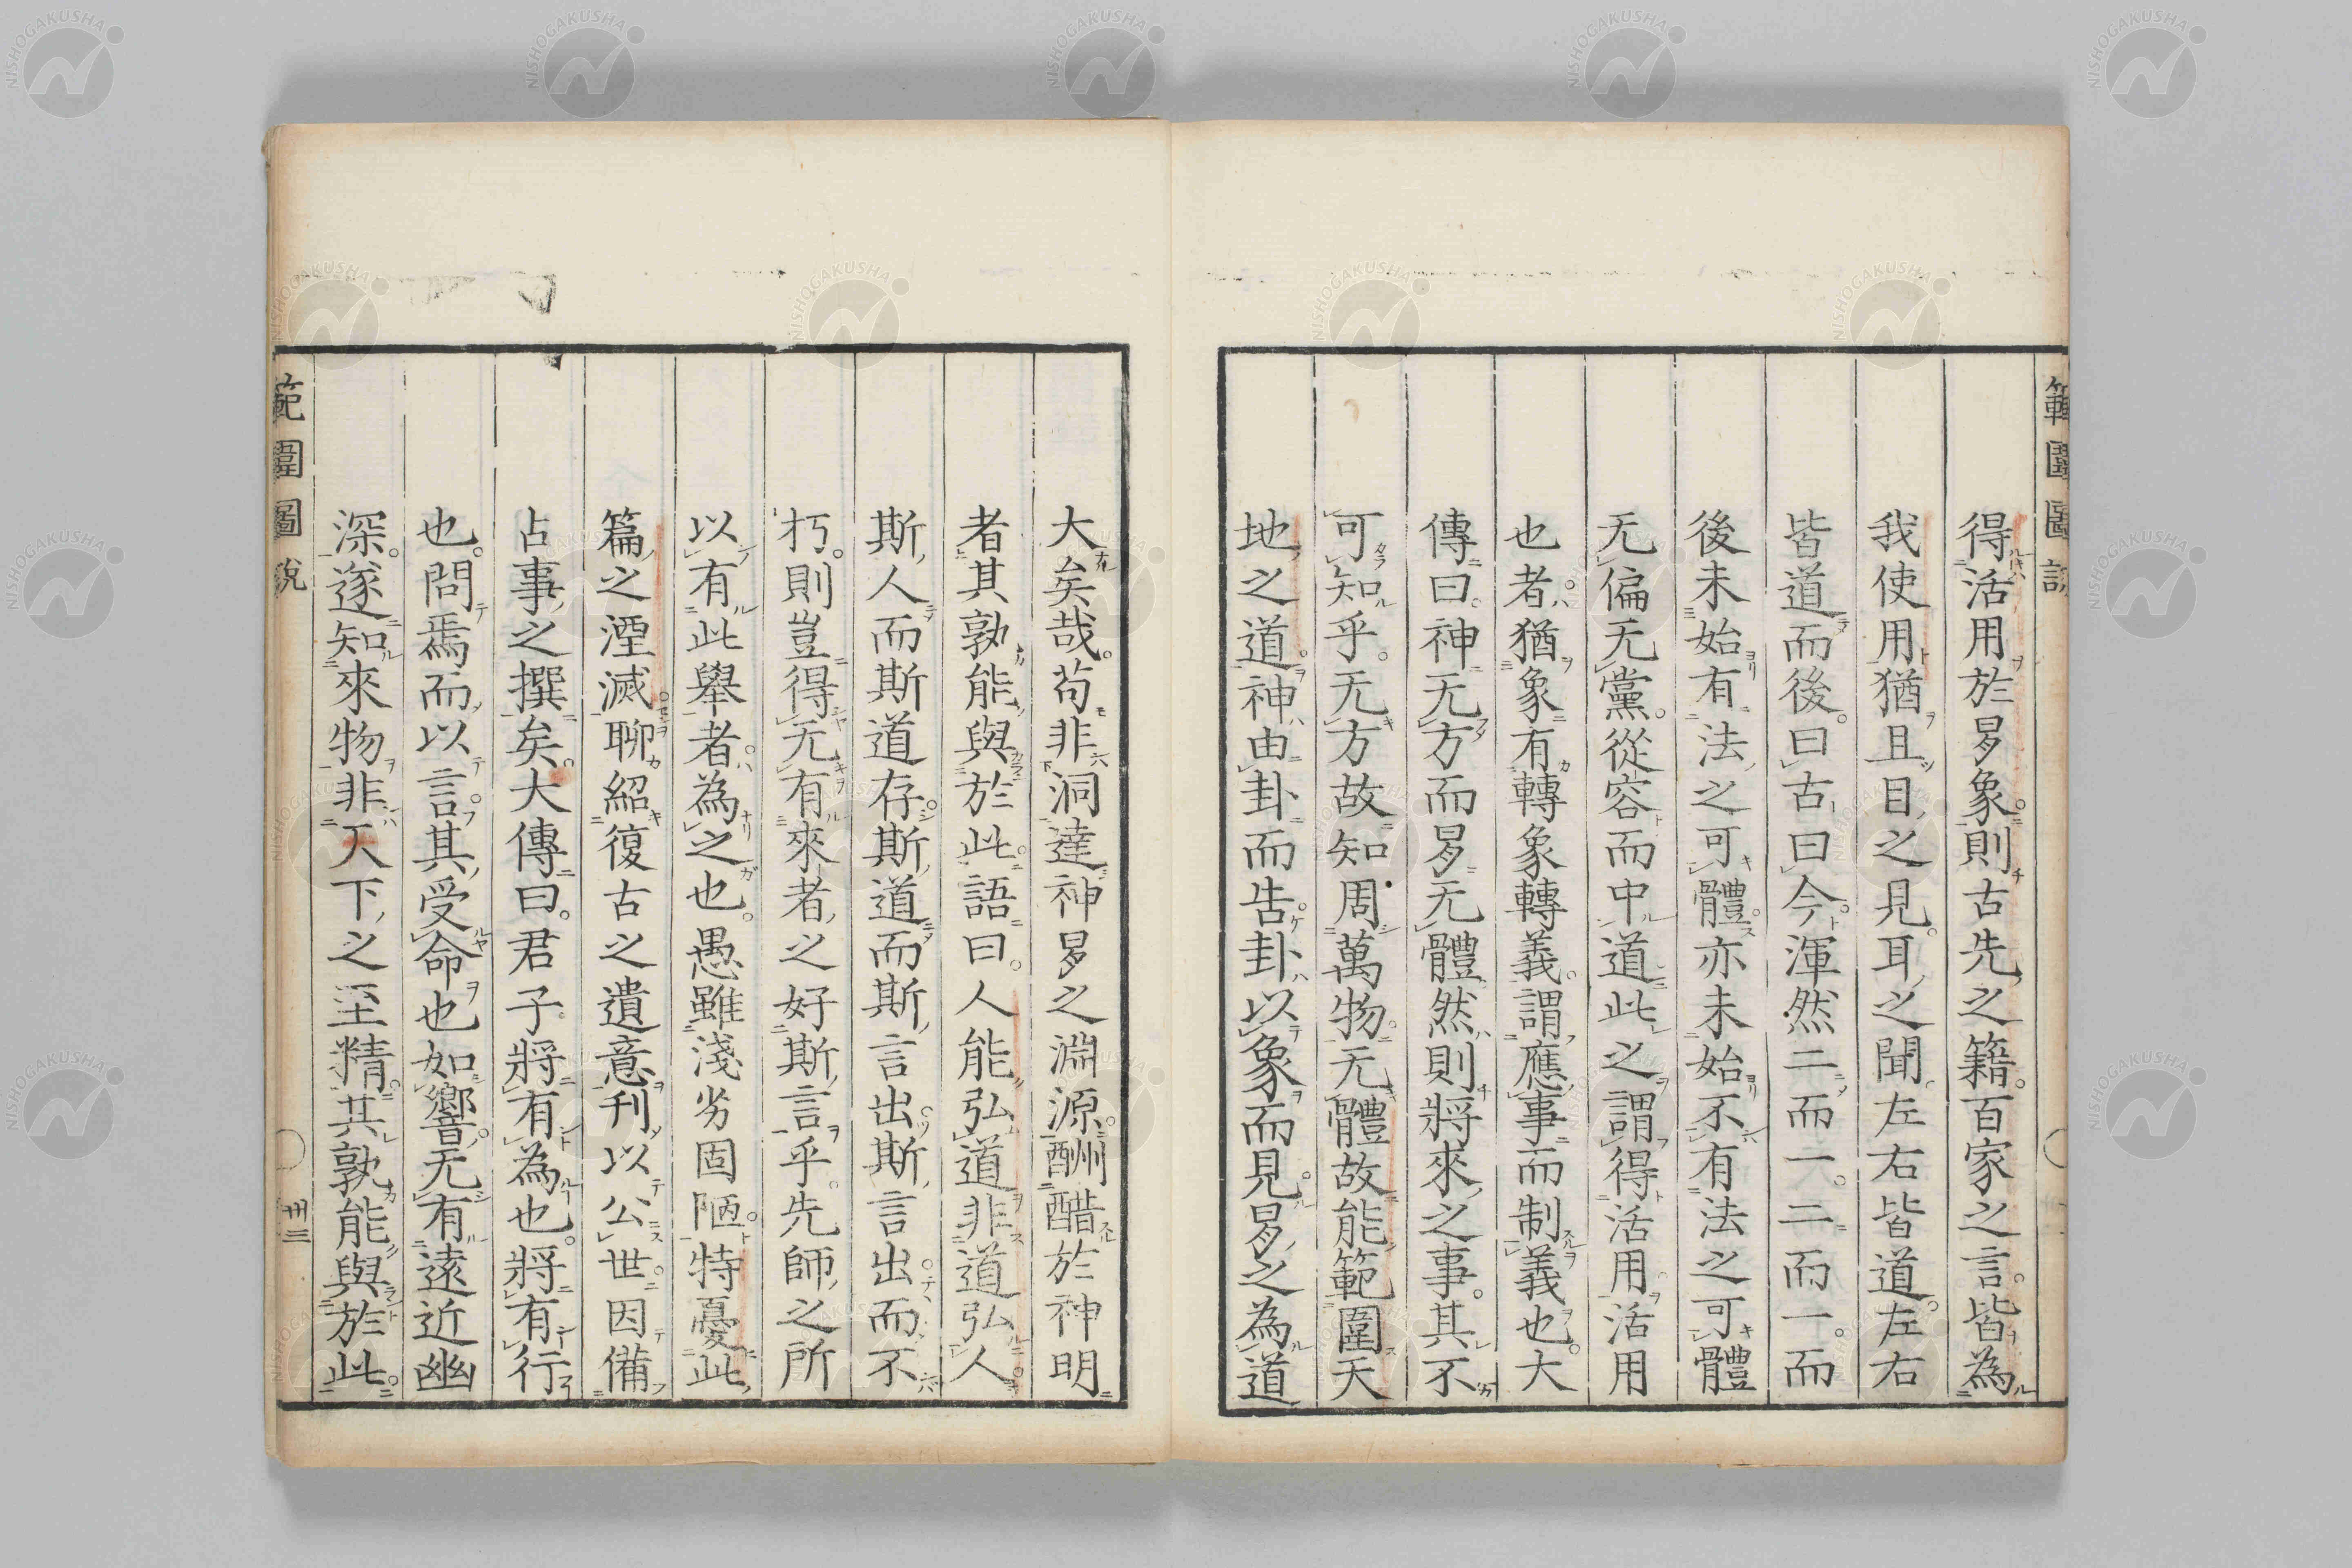 範圍圖說
得活用於易象則古先之籍百家之言皆為
我使用猶且目之見耳之聞左右皆道左右
皆道而後曰古曰今渾然二而一二而一而
後未始有法之可體亦未始不有法之可體
无偏无黨從容而中道此之謂得活用活用
也者猶象有轉象轉義謂應事而制義也大
傳曰神无方而易无體然則將來之事其不
可知乎无方故知周萬物无體故能範圍天
地之道神由卦而告卦以象而見易之為道
大矣哉苟非洞達神易之淵源酬醋於神明
者其孰能與於此語曰人能弘道非道弘人
斯人而斯道存斯道而斯言出斯言出而不
朽則豈得无有來者之好斯言乎先師之所
以有此舉者為之也愚雖淺劣固陋特憂此
篇之湮滅聊紹復古之遺意刊以公世因備
占事之撰矣大傳曰君子將有為也將有行
也問焉而以言其受命也如響无有遠近幽
深遂知來物非天下之至精其孰能與於此
範圍圖說
卅三
NISHOGAKUSHA